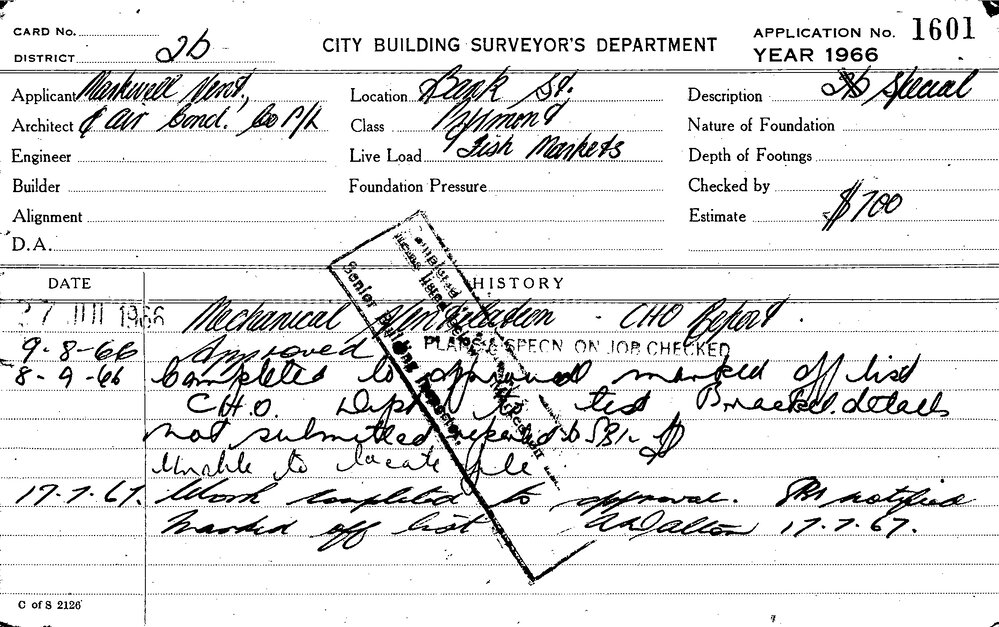 CARD No.
APPLICATION No. 1601
DISTRICT 2b
CITY BUILDING SURVEYOR'S DEPARTMENT
YEAR 1966
Applicant Markwell Vent,
Location Bank St.
Description 2b Special
Architect & Air Cond. Co P/L
Class Pyrmont
Nature of Foundation
Engineer
Live Load Fish Markets
Depth of Footings
Builder
Foundation Pressure
Checked by
Alignment
Estimate $700
D.A.
DATE
HISTORY
27 JUL 1966 Mechanical Ventilation CHO Report.
9-8-66 Approved PLANS & SPECN ON JOB CHECKED
8-9-66 Completed to approval marked off list
C.H.O. Dept to test Bracket details
not submitted
Unable to locate file
17.7.67. Work completed to approval. notified
Marked off list Dalton 17.7.67.
Completed
Senior Building Inspector.
C of S 2126